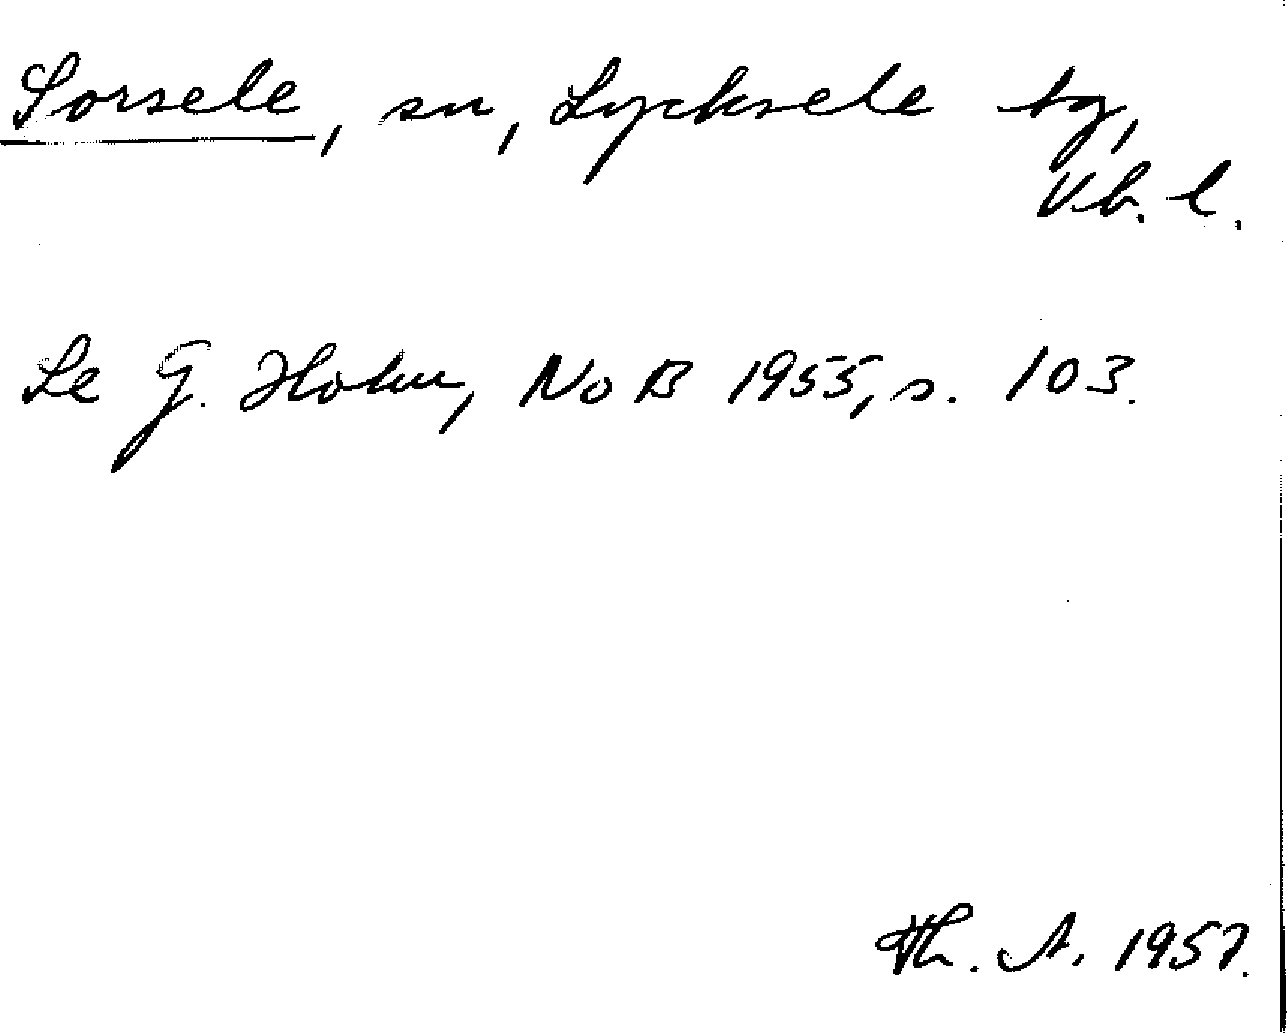 Sorsele, sn, Lycksele tg,
Vb. l.
Se G. Holm, NoB 1955, s. 103.
Th. A. 1957.